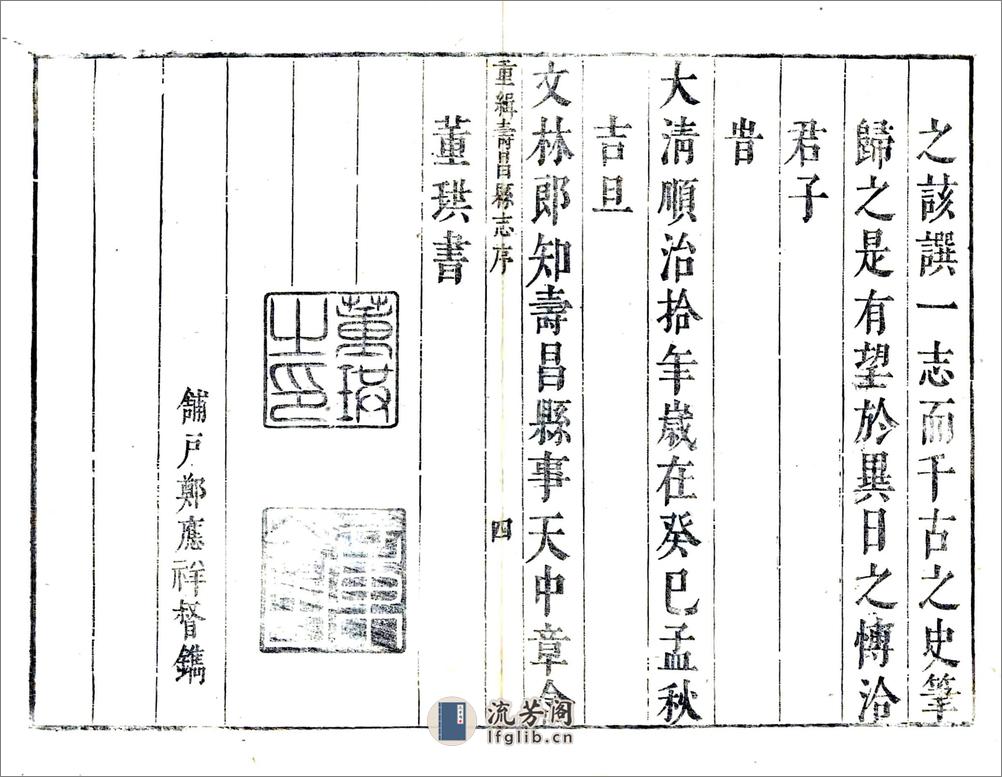 之該譔一志而千古之史筆
歸之是有望於異日之愽洽
君子
旹
大淸順治拾年歲在癸巳孟秋
吉旦
文林郎知壽昌縣事天中章
重緝壽昌縣志序
四
董珙書
董珙
之印
舖戸鄭應祥督鐫
流芳阁
lfglib.cn